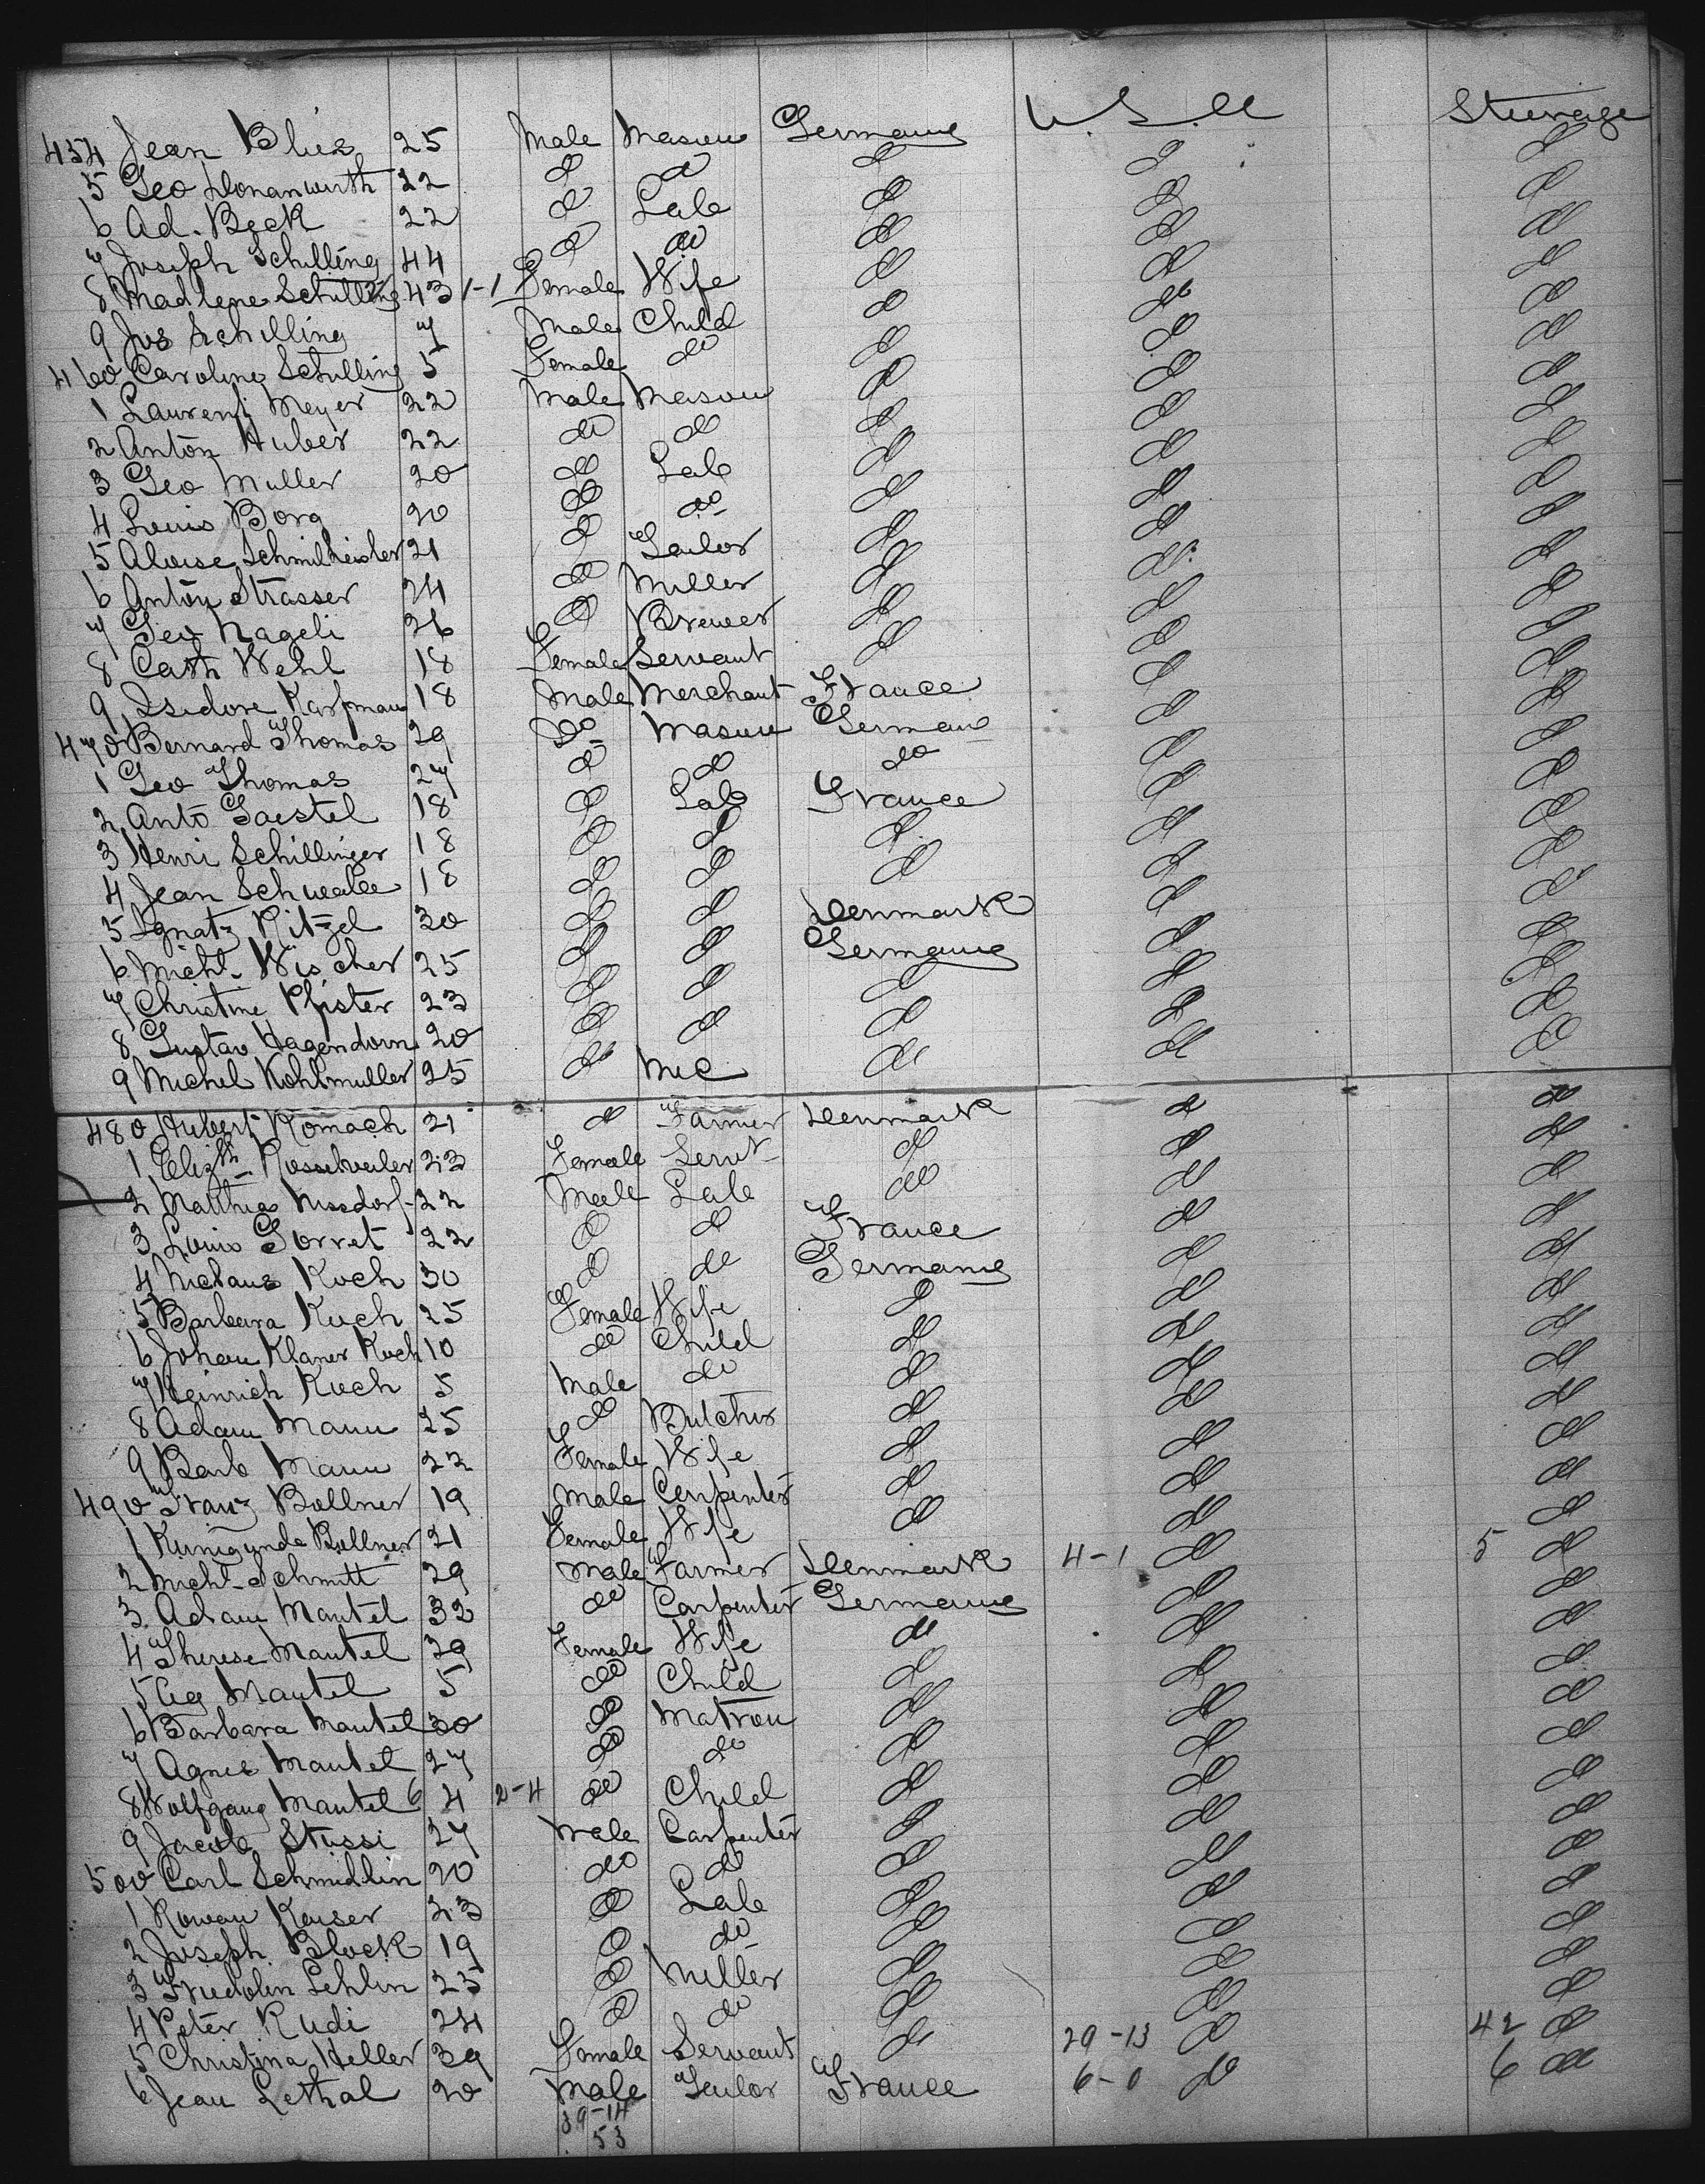 454 Jean Blies 25 Male Mason Germany U.S.A Steerage
5 Geo Donanwirth 22 d d d d d
6 Ad. Beck 22 d Lab d d d
7 Joseph Schilling 44 d do d d d
8 Madlene Schilling 43 1-1 Female Wife d d d
9 Jos Schilling 7 Male Child d do d
460 Caroline Schilling 5 Female do d d d
1 Laurenz Meyer 22 Male Mason d d d
2 Anton Huber 22 do do d d d
3 Geo Muller 20 do Lab d d d
4 Louis Borg 20 do do d d d
5 Aloise Schmilheisler 21 d Tailor d d d
6 Anton Strasser 24 do Miller d do d
7 Geo Nageli 26 d Brewer d d d
8 Cath Wehl 18 Female Servant d d d
9 Isidore Kaufman 18 Male Merchant France d d
470 Bernard Thomas 29 Do Mason German d d
1 Geo Thomas 27 d d do d d
2 Anto Gaestel 18 d Lab France d d
3 Henri Schillinger 18 d d d d d
4 Jean Schwalle 18 d d d d d
5 Ignatz Kitzel 30 d d Denmark d d
6 Michl. Wischer 25 d d Germany d d
7 Christine Pfister 23 d d d d d
8 Gustav Hagendorn 20 d d d d d
9 Michel Kohlmuller 25 do Mec do do d
480 Hubert Romach 21 do Farmer Denmark d d
1 Elizth Rosselweiler 23 Female Servt d d d
2 Matthias Nussdorf 22 Male Lab do d d
3 Louis Gorret 22 d d France d d
4 Niclaus Koch 30 d do Germany d d
5 Barbara Koch 25 Female Wife d d d
6 Johan Klaner Koch 10 do Child d d d
7 Heinrich Koch 5 Male do d d d
8 Adam Mann 25 do Butcher d d d
9 Barb Mann 22 Female Wife d d d
490 Franz Bollner 19 Male Carpenter d d d
1 Kunigunde Bollner 21 Female Wife d d d
2 Michl. Schmitt 29 Male Farmer Denmark 4-1 d 5 d
3 Adam Mantel 32 do Carpenter Germany d d
4 Therese Mantel 29 Female Wife do d d
5 Ag Mantel 5 do Child d d d
6 Barbara Mantel 30 do Matron d d d
7 Agnes Mantel 27 do do d d d
8 Wolfgang Mantel 6 4 2-4 do Child d d d
9 Jacob Stussi 27 Male Carpenter d d d
500 Carl Schmidlin 20 do do d d d
1 Roman Kaiser 23 d Lab d d d
2 Joseph Block 19 d do d d d
3 Fridolin Lehlin 25 d Miller d d d
4 Peter Rudi 24 d do d d d
5 Christina Heller 39 Female Servant do 29-13 d 42 d
6 Jean Lethal 20 Male Tailor France 6-0 do 6 do
39-14
53